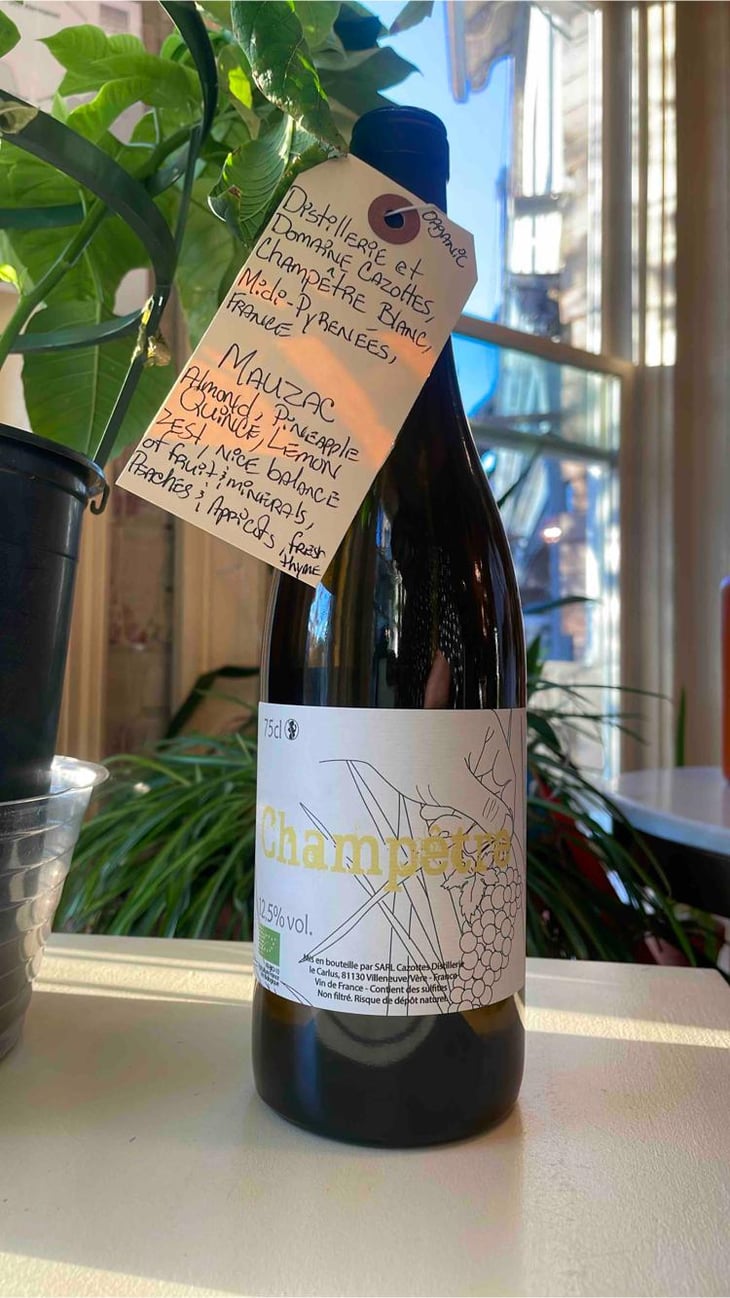 ORGANIC
DistillERIE et
DOMAINE CAZOTTES,
CHAMPÊTRE BLANC,
Midi-PYRENEES,
FRANCE
MAUZAC
Almond, PiNEAPPLE
QUINCE, LEMON
ZEST, NICE bALANCE
of fRuit & MINERALS,
PEACHES & APRICOTS, fresh
thyme
75cl
Champêtre
12.5% vol.
Mis en bouteille par SARL Cazottes Distillerie
le Carlus, 81130 Villeneuve/Vère - France
Vin de France - Contient des sulfites
Non filtré. Risque de dépôt naturel.